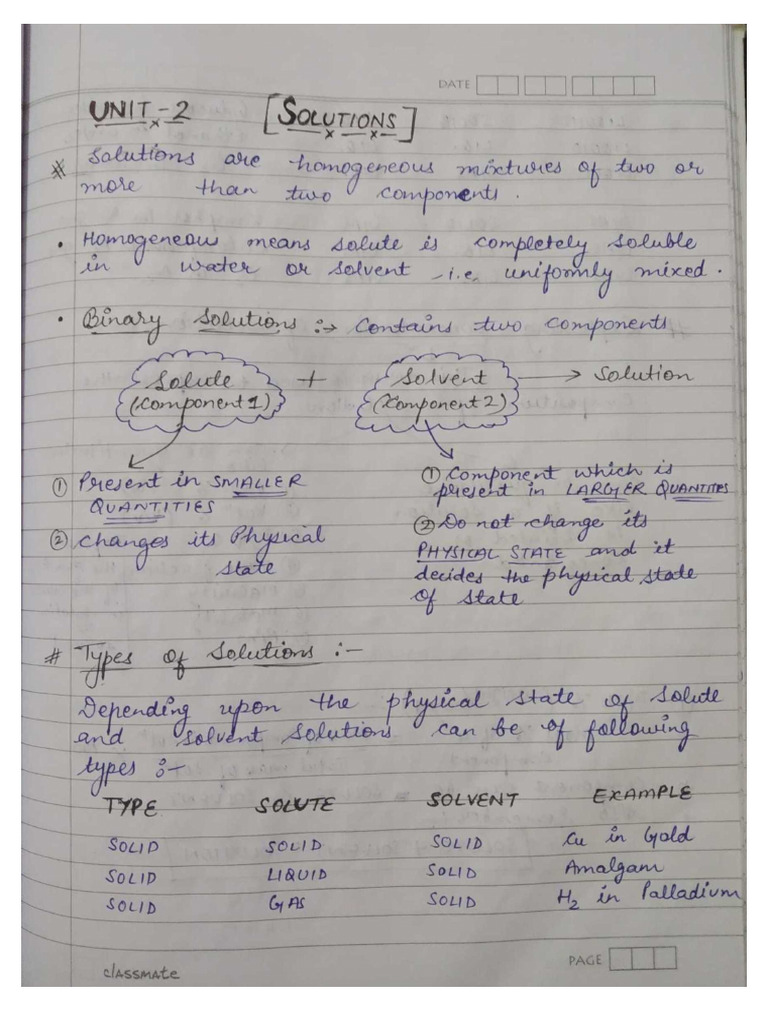 DATE
UNIT-2 [SOLUTIONS]
* Solutions are homogeneous mixtures of two or
more than two components.
• Homogeneous means solute is completely soluble
in water or solvent -i.e. uniformly mixed.
• Binary Solutions :→ Contains two components
Solute + Solvent → Solution
(Component 1) (Component 2)
① Present in SMALLER
QUANTITIES
② Changes its Physical
state
① Component which is
present in LARGER QUANTITES
② Do not change its
PHYSICAL STATE and it
decides the physical state
of state
# Types of Solutions :-
Depending upon the physical state of solute
and solvent solutions can be of following
types :-
TYPE SOLUTE SOLVENT EXAMPLE
SOLID SOLID SOLID Cu in Gold
SOLID LIQUID SOLID Amalgam
SOLID GAS SOLID H₂ in Palladium
PAGE
classmate